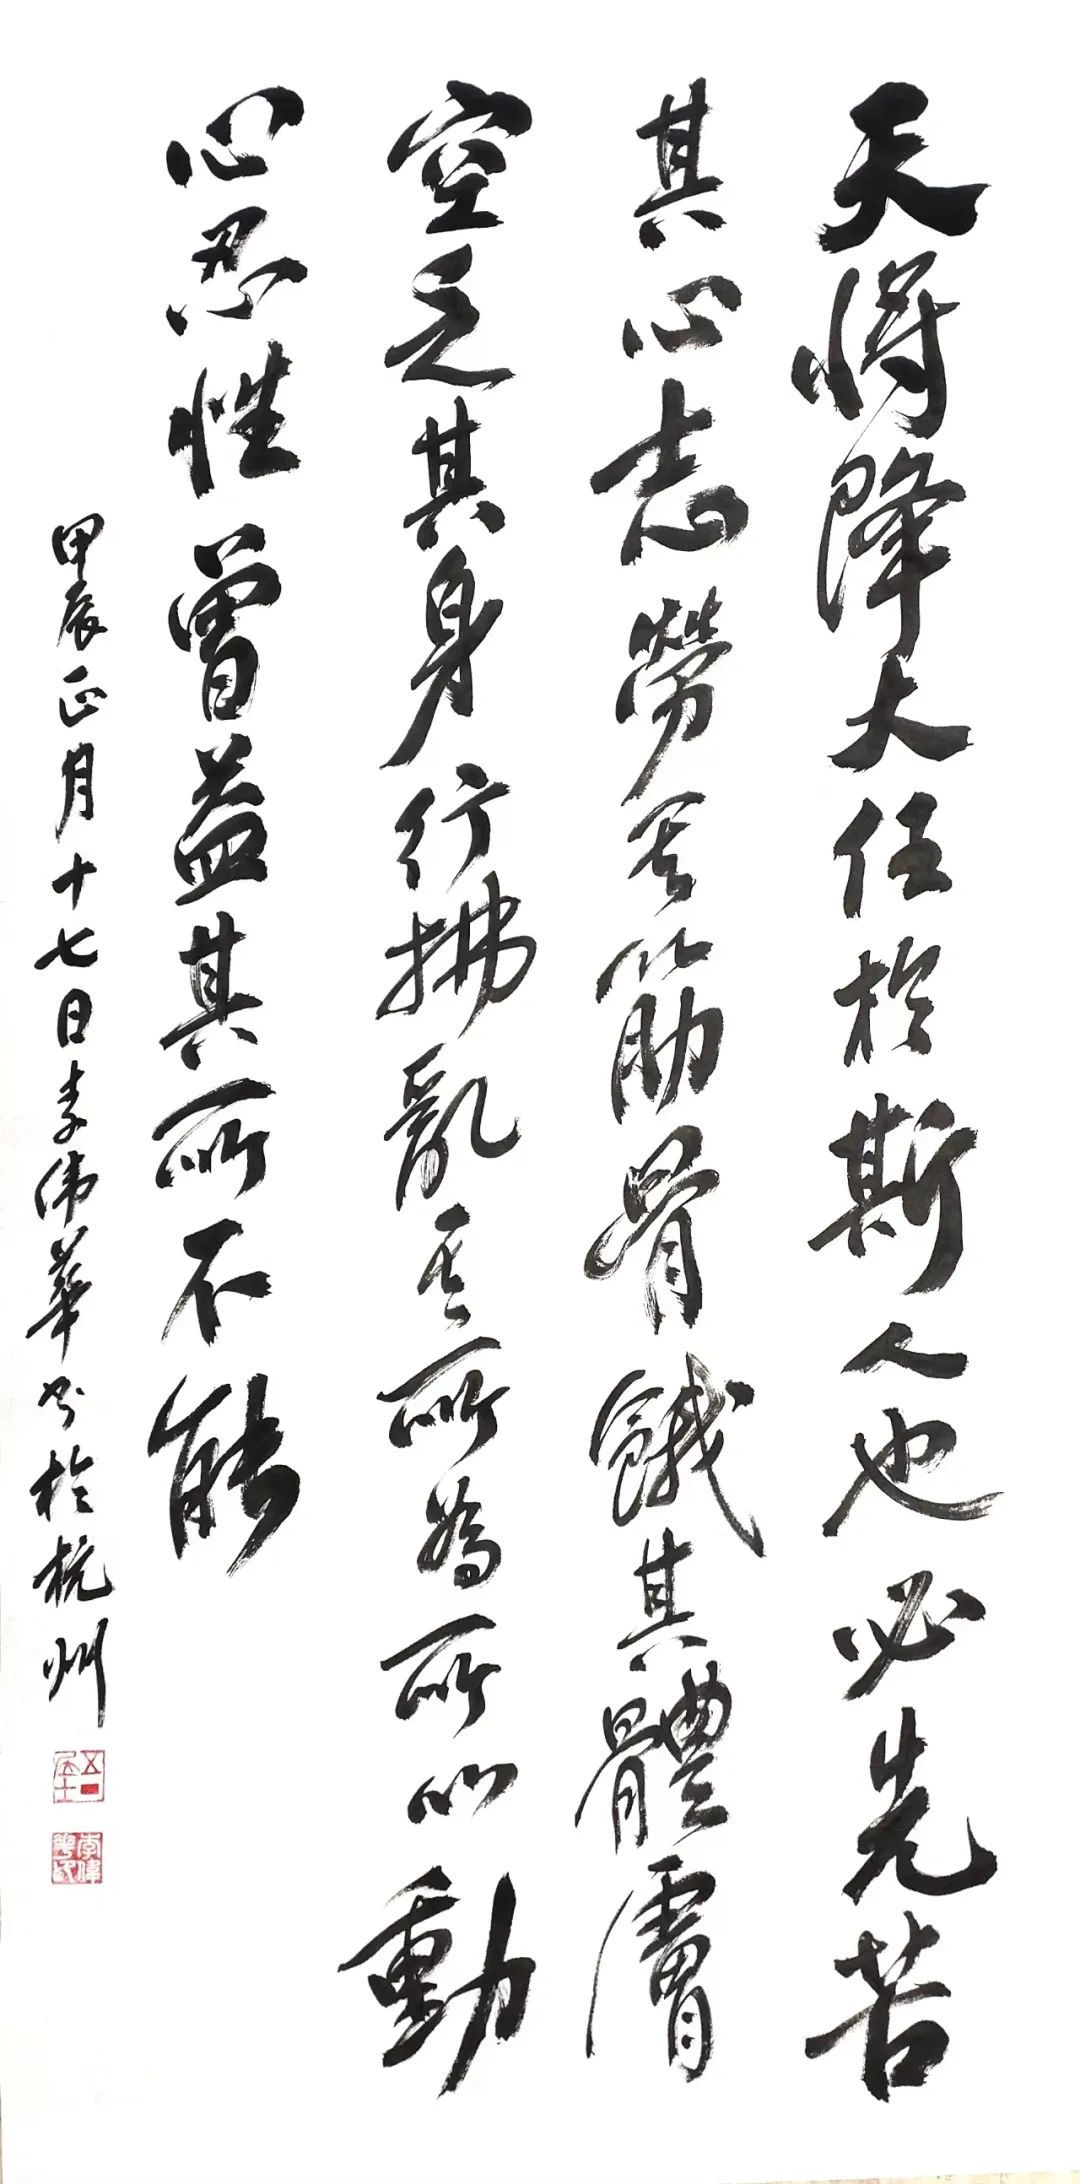 天将降大任於斯人也必先苦
其心志勞其筋骨餓其體膚
空乏其身行拂亂其所為所以動
心忍性曾益其所不能
甲辰正月十七日李伟華书於杭州
居士
李偉華印